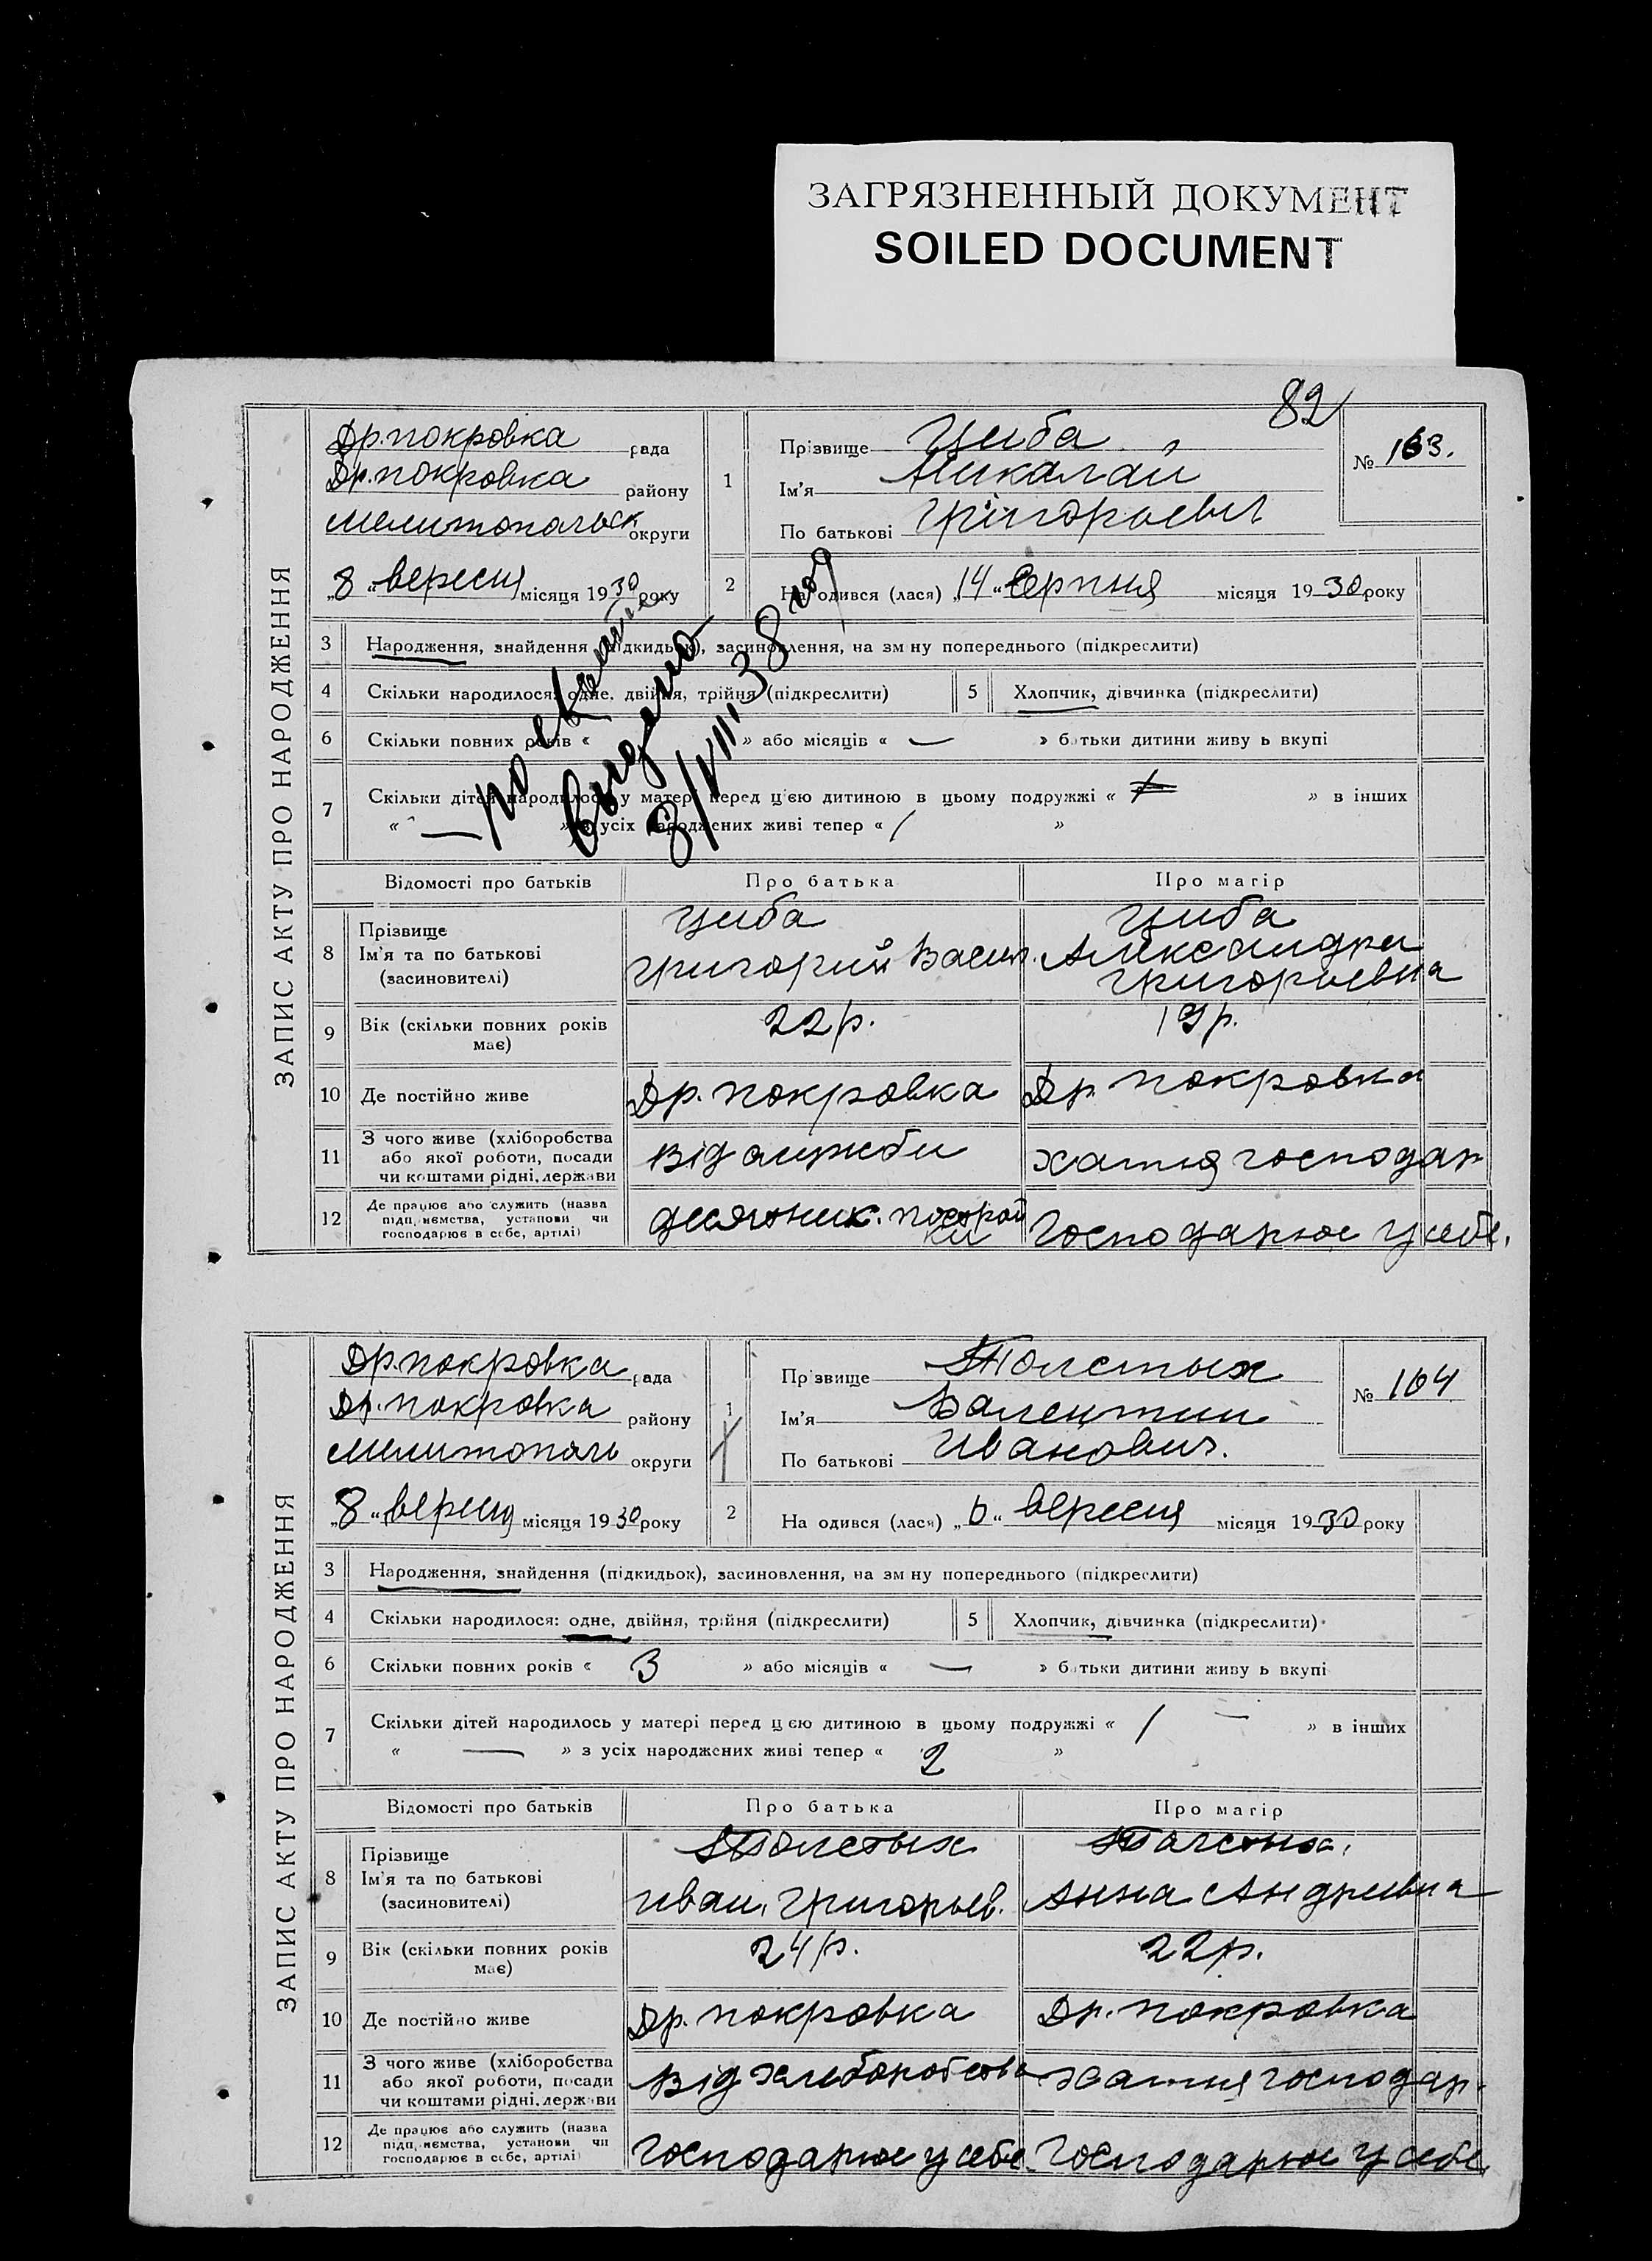 ЗАГРЯЗНЕННЫЙ ДОКУМЕНТ
SOILED DOCUMENT
82
ЗАПИС АКТУ ПРО НАРОДЖЕННЯ
Др.покровка рада
Др.покровка району
Мелитопольск округи
„8“ вересня місяця 1930 року
1 Прізвище Циба
Ім'я Николай
По батькові Григорьевич
№ 163.
2 Народився (лася) „14“ Серпня місяця 1930 року
3 Народження, знайдення (підкидьок), засиновлення, на зміну попереднього (підкреслити)
4 Скільки народилося: одне, двійня, трійня (підкреслити)
5 Хлопчик, дівчинка (підкреслити)
6 Скільки повних років « » або місяців « — » батьки дитини живуть вкупі
7 Скільки дітей народилось у матері перед цією дитиною в цьому подружжі « » в інших
« — » з усіх народжених живі тепер « 1 »
выдано
3/VIII 38
Відомості про батьків Про батька Про матір
8 Прізвище
Ім'я та по батькові
(засиновителі)
Циба
Григорий Васил.
Циба
Александра
Григорьевна
9 Вік (скільки повних років
має)
22р. 19р.
10 Де постійно живе Др. покровка Др. покровка
11 З чого живе (хліборобства
або якої роботи, посади
чи коштами рідні, держави
Від служби хатня господар
12 Де працює або служить (назва
підприємства, установи чи
господарює в себе, артілі)
десятник. Господарює у себе.
ЗАПИС АКТУ ПРО НАРОДЖЕННЯ
Др.покровка рада
Др.покровка району
Мелитополь округи
„8“ вересня місяця 1930 року
1 Прізвище Толстых
Ім'я Валентин
По батькові Иванович.
№ 164
2 Народився (лася) „6“ вересня місяця 1930 року
3 Народження, знайдення (підкидьок), засиновлення, на зміну попереднього (підкреслити)
4 Скільки народилося: одне, двійня, трійня (підкреслити)
5 Хлопчик, дівчинка (підкреслити)
6 Скільки повних років « 3 » або місяців « — » батьки дитини живуть вкупі
7 Скільки дітей народилось у матері перед цією дитиною в цьому подружжі « 1 — » в інших
« — » з усіх народжених живі тепер « 2 »
Відомості про батьків Про батька Про матір
8 Прізвище
Ім'я та по батькові
(засиновителі)
Толстых
Иван. Григорьев.
Толстых.
Анна Андреевна
9 Вік (скільки повних років
має)
24р. 22р.
10 Де постійно живе Др. покровка Др. покровка
11 З чого живе (хліборобства
або якої роботи, посади
чи коштами рідні, держави
Від хлеборобства хатня господар.
12 Де працює або служить (назва
підприємства, установи чи
господарює в себе, артілі)
Господарює у себе Господарює у себе